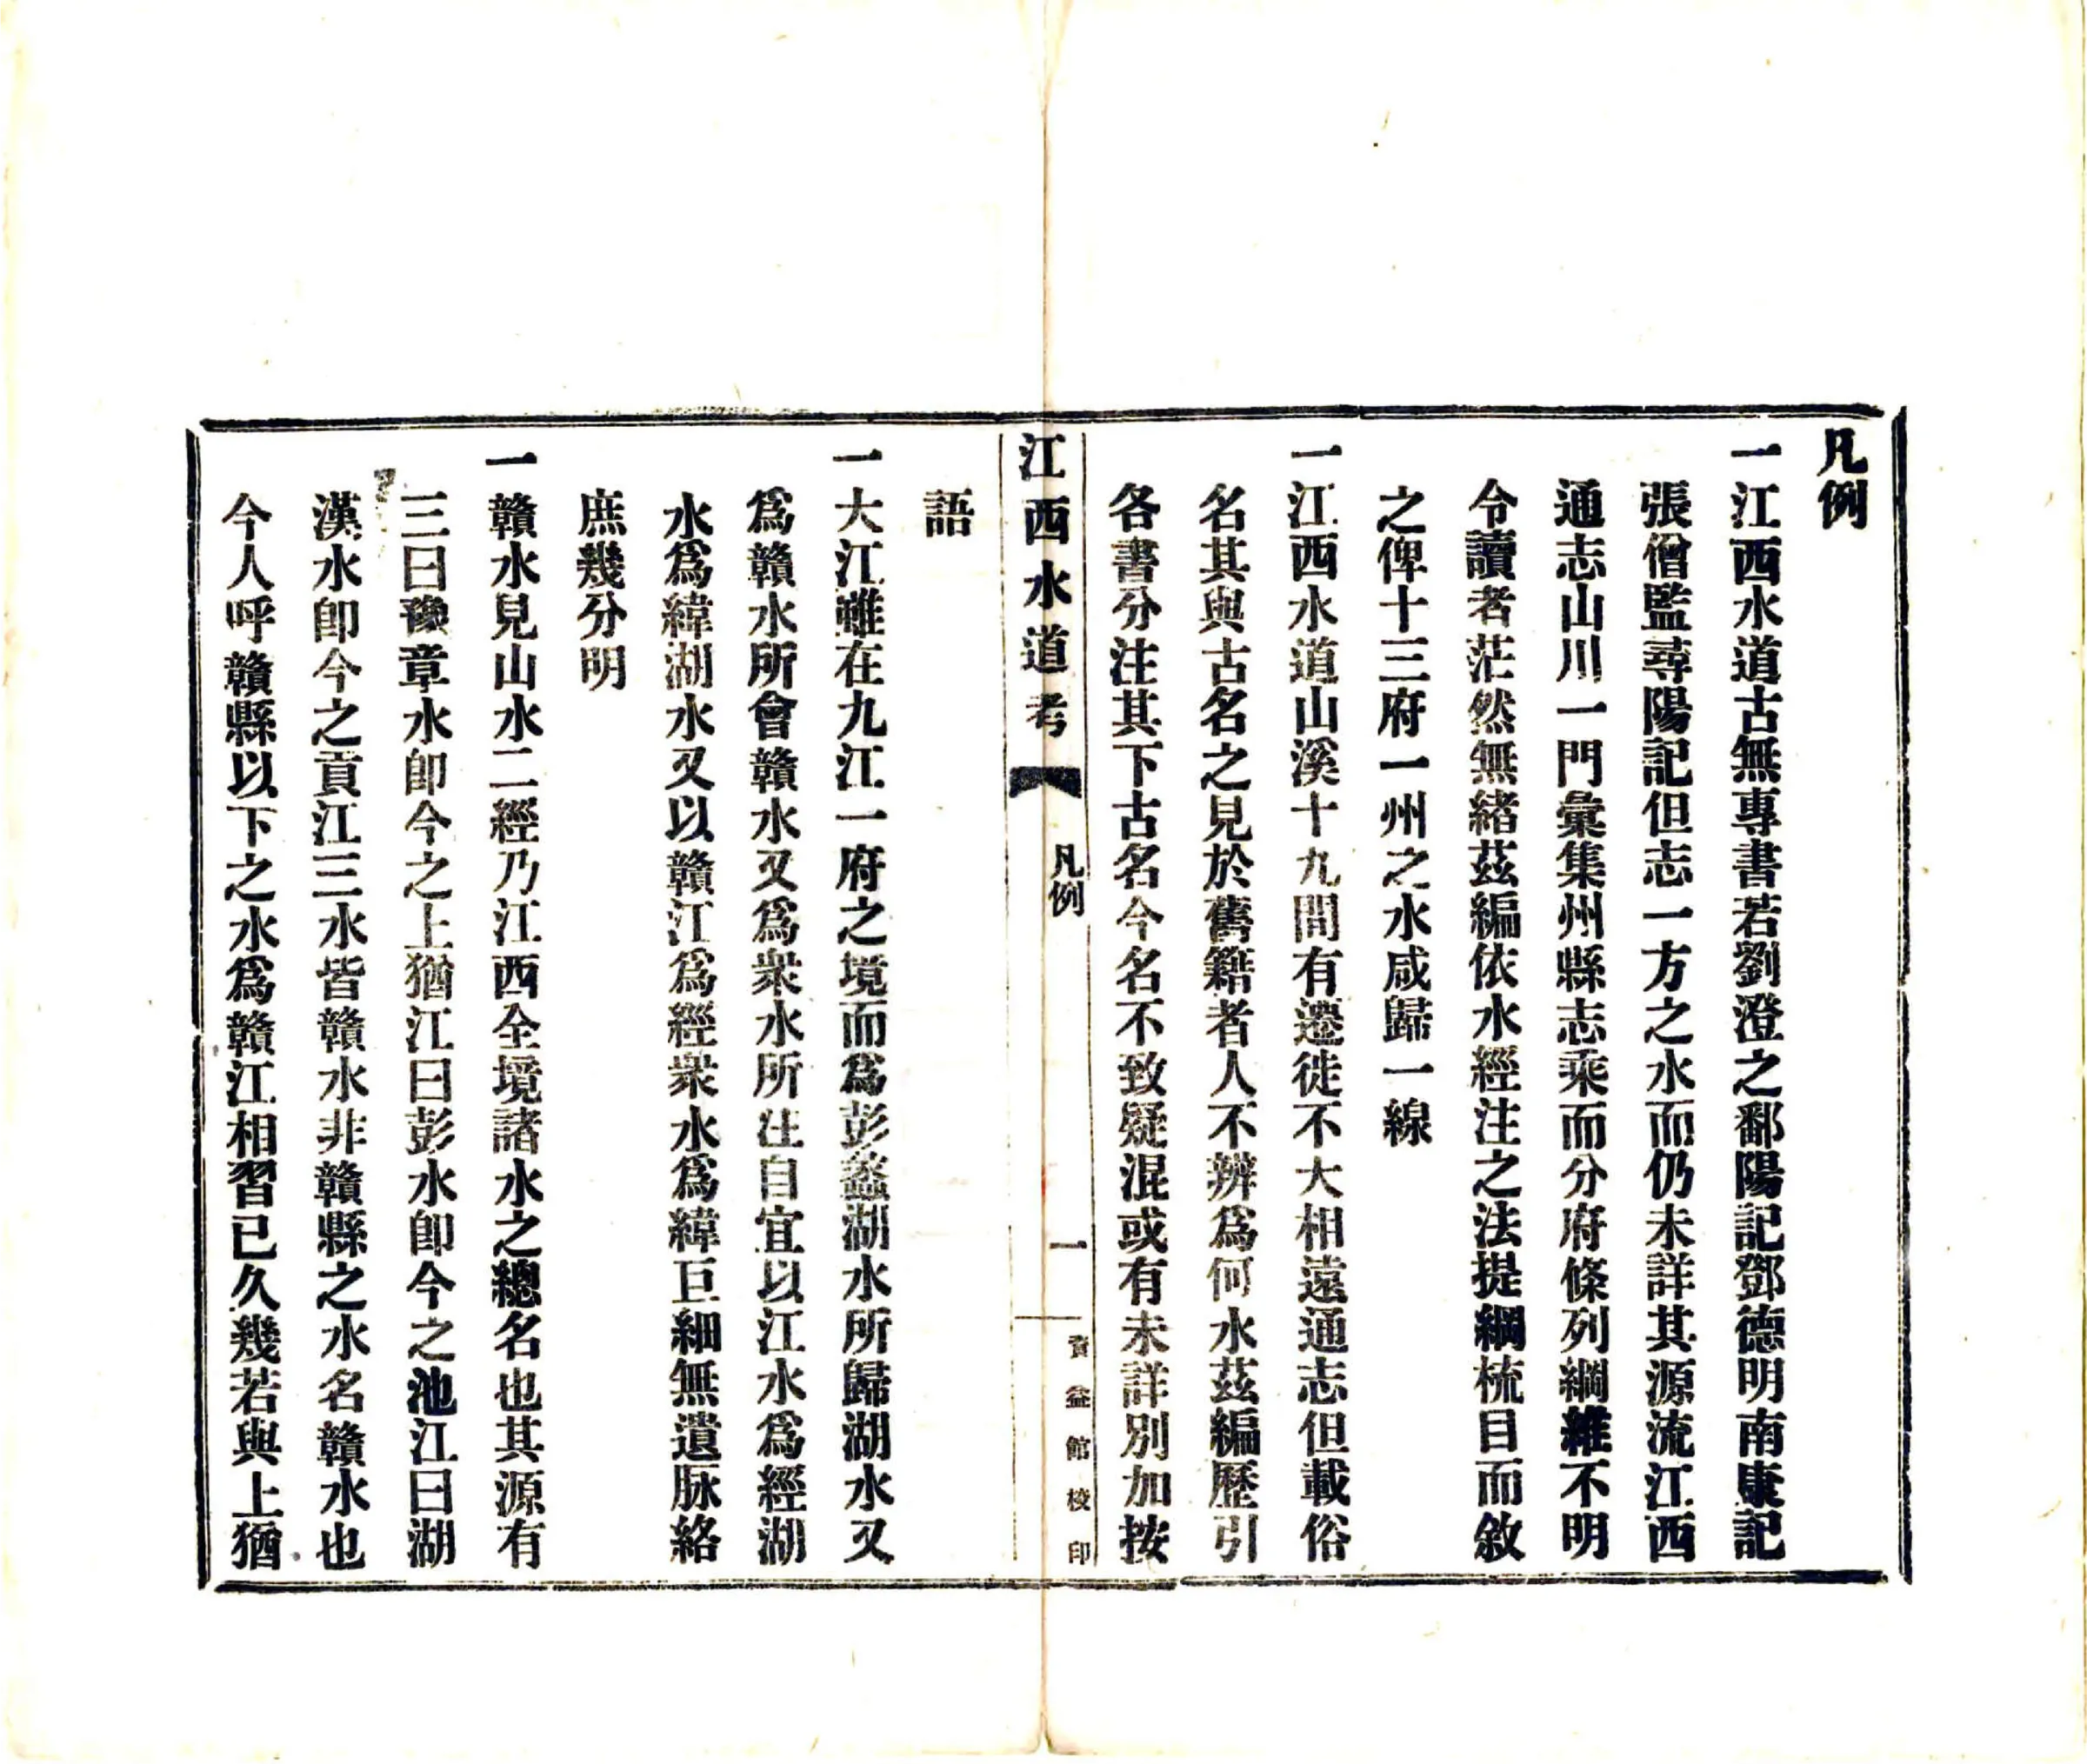 凡例
一江西水道古無專書若劉澄之鄱陽記鄧德明南康記
張僧監尋陽記但志一方之水而仍未詳其源流江西
通志山川一門彙集州縣志乘而分府條列綱維不明
令讀者茫然無緒茲編依水經注之法提綱梳目而敘
之俾十三府一州之水咸歸一線
一江西水道山溪十九間有遷徙不大相遠通志但載俗
名其與古名之見於舊籍者人不辨爲何水茲編歷引
各書分注其下古名今名不致疑混或有未詳別加按
江西水道考
凡例
一
資益館校印
語
一大江雖在九江一府之境而爲彭蠡湖水所歸湖水又
爲贛水所會贛水又爲衆水所注自宜以江水爲經湖
水爲緯湖水又以贛江爲經衆水爲緯巨細無遺脉絡
庶幾分明
一贛水見山水二經乃江西全境諸水之總名也其源有
三曰豫章水卽今之上猶江曰彭水卽今之池江曰湖
漢水卽今之貢江三水皆贛水非贛縣之水名贛水也
今人呼贛縣以下之水爲贛江相習已久幾若與上猶